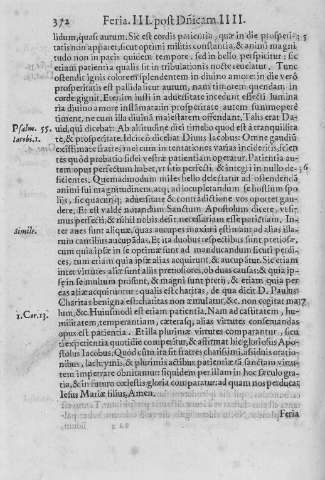 372 Feria. III. post Dñicam. IIII.
lidum, quasi aurum. Sic est cordis patientia, quæ in die prosperi- 35
tatis non apparet, sicut optimi militis constantia, & animi magni
tudo non in pacis quietem tempore, sed in bello perspicitur: sic
etiam patientia qualis sit in tribulationis nocte revelatur. Tunc
ostendit ignis colorem splendentem in divino amore: in die verò
prosperitatis est pallida sicut aurum, nam timorem quendam in
corde gignit. Etenim iusti in adversitate incedunt effecti lumina
ria divino amore inflammata: in prosperitate autem summopere
timent, ne cum illa divinã maiestatem offendant. Talis erat Da-
Psalm. 55. uid, qui dicebat: Ab altitudine diei timebo quod est à tranquillita
Iacobi. 1. te, & prosperitate. Idcirco dicebat Divus Iacobus Omne gaudiũ
existimate fratres mei cum in tentationes varias incideritis, scien
tes quòd probatio fidei vestræ patientiam operatur. Patientia au-
tem opus perfectum habet, ut sitis perfecti, & integri in nullo de- 36
ficientes. Quemadmodum miles bello delectatur ad ostendendã
animi sui magnitudinem, atque ad locupletandum se hostium spo
lijs, sic quacunque adversitate & contradictione vos oportet gaude-
re. Et est valdè notandum Sanctum Apostolum dicere, ut si-
mus perfecti, & nihil nobis desit, necessarium esse patientiam. In-
Simile. ter aues sunt aliquæ, quas aucupes maximi estimant ad alias illa-
rum carnibus aucupãdas. Et ita duobus respectibus sunt pretiosæ,
cum quia ipsæ in se optimæ sunt ad manducandum sicuti perdi-
ces, tum etiam quia ipsæ alias acquirunt & aucupãtur. Sic etiam
inter virtutes aliæ sunt alijs pretiosiores, ob duas causas: & quia ip-
sæ in se multum prosunt, & magni sunt pretij, & etiam quia per
eas aliæ acquiruntur: qualis est charitas, de qua dicit D. Paulus
Charitas benigna est, charitas non æmulatur, &c. non cogitat ma- 37
1. Cor. 13. lum, &c. Huiusmodi est etiam patientia. Nam ad castitatem, hu-
militatem, temperantiam, cæterasque alias virtutes conservandas
opus est patientia. Et illa plurimæ virtutes comparantur, sicut
experientia quotidie compertum est, & affirmat hîc gloriosus Apo-
stolus Iacobus. Quod cùm ita sit fratres charissimi, assiduis oratio
nibus, lachrymis, & plurimis actibus patientiæ tã sanctam virtu-
tem impetrare obnitamur: siquidem per illam in hoc sæculo gra-
tia, & in futuro cœlestis gloria comparatur, ad quam nos perducat
Iesus Mariæ filius, Amen.
Feria